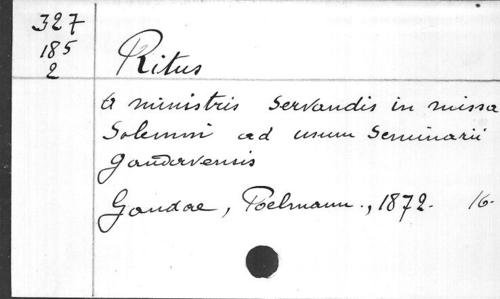 327
185
2
Ritus
a ministris servandis in missa
Solemni ad usum Seminarii
Gandavensis
Gandae, Poelmann., 1872. 16-